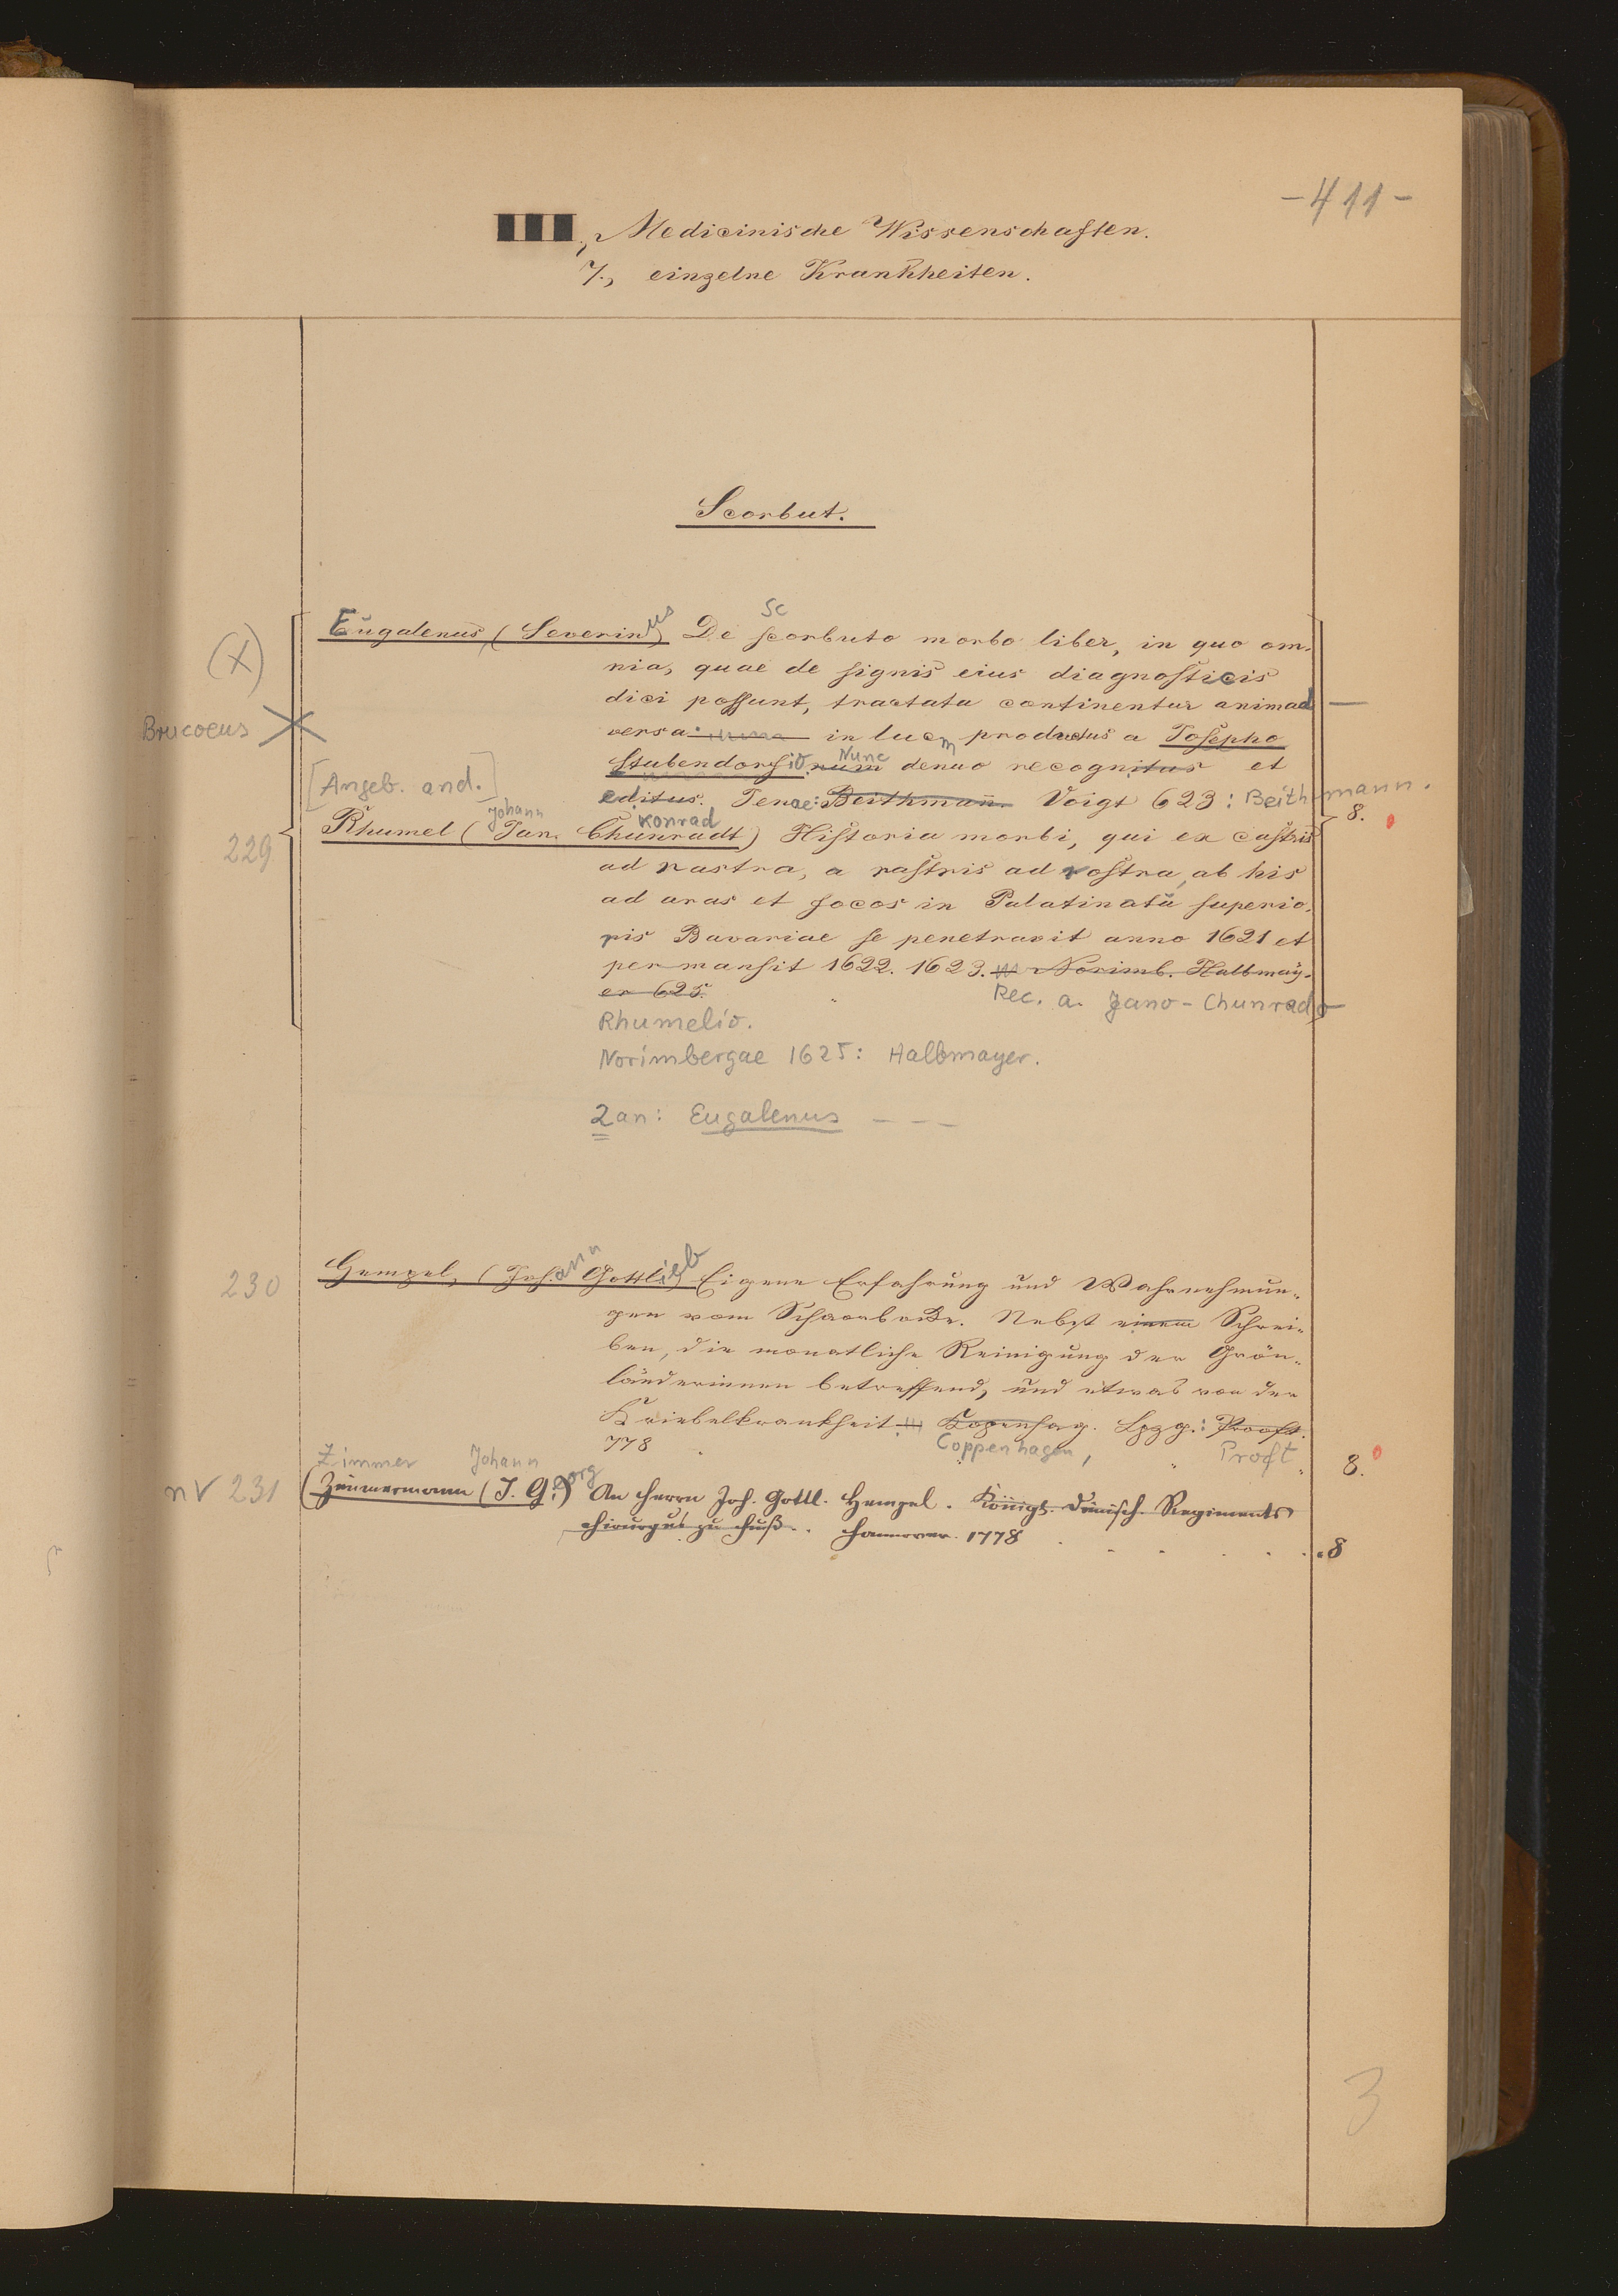 -411-
III, Medicinische Wissenschaften.
7., einzelne Krankheiten.
Scorbut.
Sc
Eugalenus, (Severinus) De scorbuto morbo liber, in quo om-
(X)
nia, quae de signis eius diagnosticis
dici possunt, tractata continentur animad
Brucoeus
versa in lucem productus a Josepho
Nunc
Stubendorfio num denuo recognitus et
[Angeb. and.]
editus. Jenae: Beithmann. Voigt 623: Beithmann.
8.
Johann Konrad
229
Rhumel (Jan. Chunradt) Historia morbi, qui ex castris
ad rastra, a rastris ad rostra, ab his
ad aras et focos in Palatinatu superio-
ris Bavariae se penetravit anno 1621 et
permansit 1622. 1623. Norimb. Halbmay-
er 625.
Rec. a. Jano-Chunrado
Rhumelio.
Norimbergae 1625: Halbmayer.
2 an: Eugalenus - - -
230
Hempel, (Johann Gottlieb) Eigene Erfahrung und Wahrnehmun-
gen vom Schaarbocke. Nebst einem Schrei-
ben, die monatliche Reinigung der Grön-
länderinnen betreffend, und etwas von der
Kriebelkrankheit. Kopenhag. Lpzg.: Prooft.
778
Coppenhagen, Proft
8.
Zimmer Johann
nv 231
(Zimmermann (J. Georg) An Herrn Joh. Gottl. Hempel. Königl. Dänisch. Regiments
chirurgus zu Fuß. Hannover. 1778
8
3